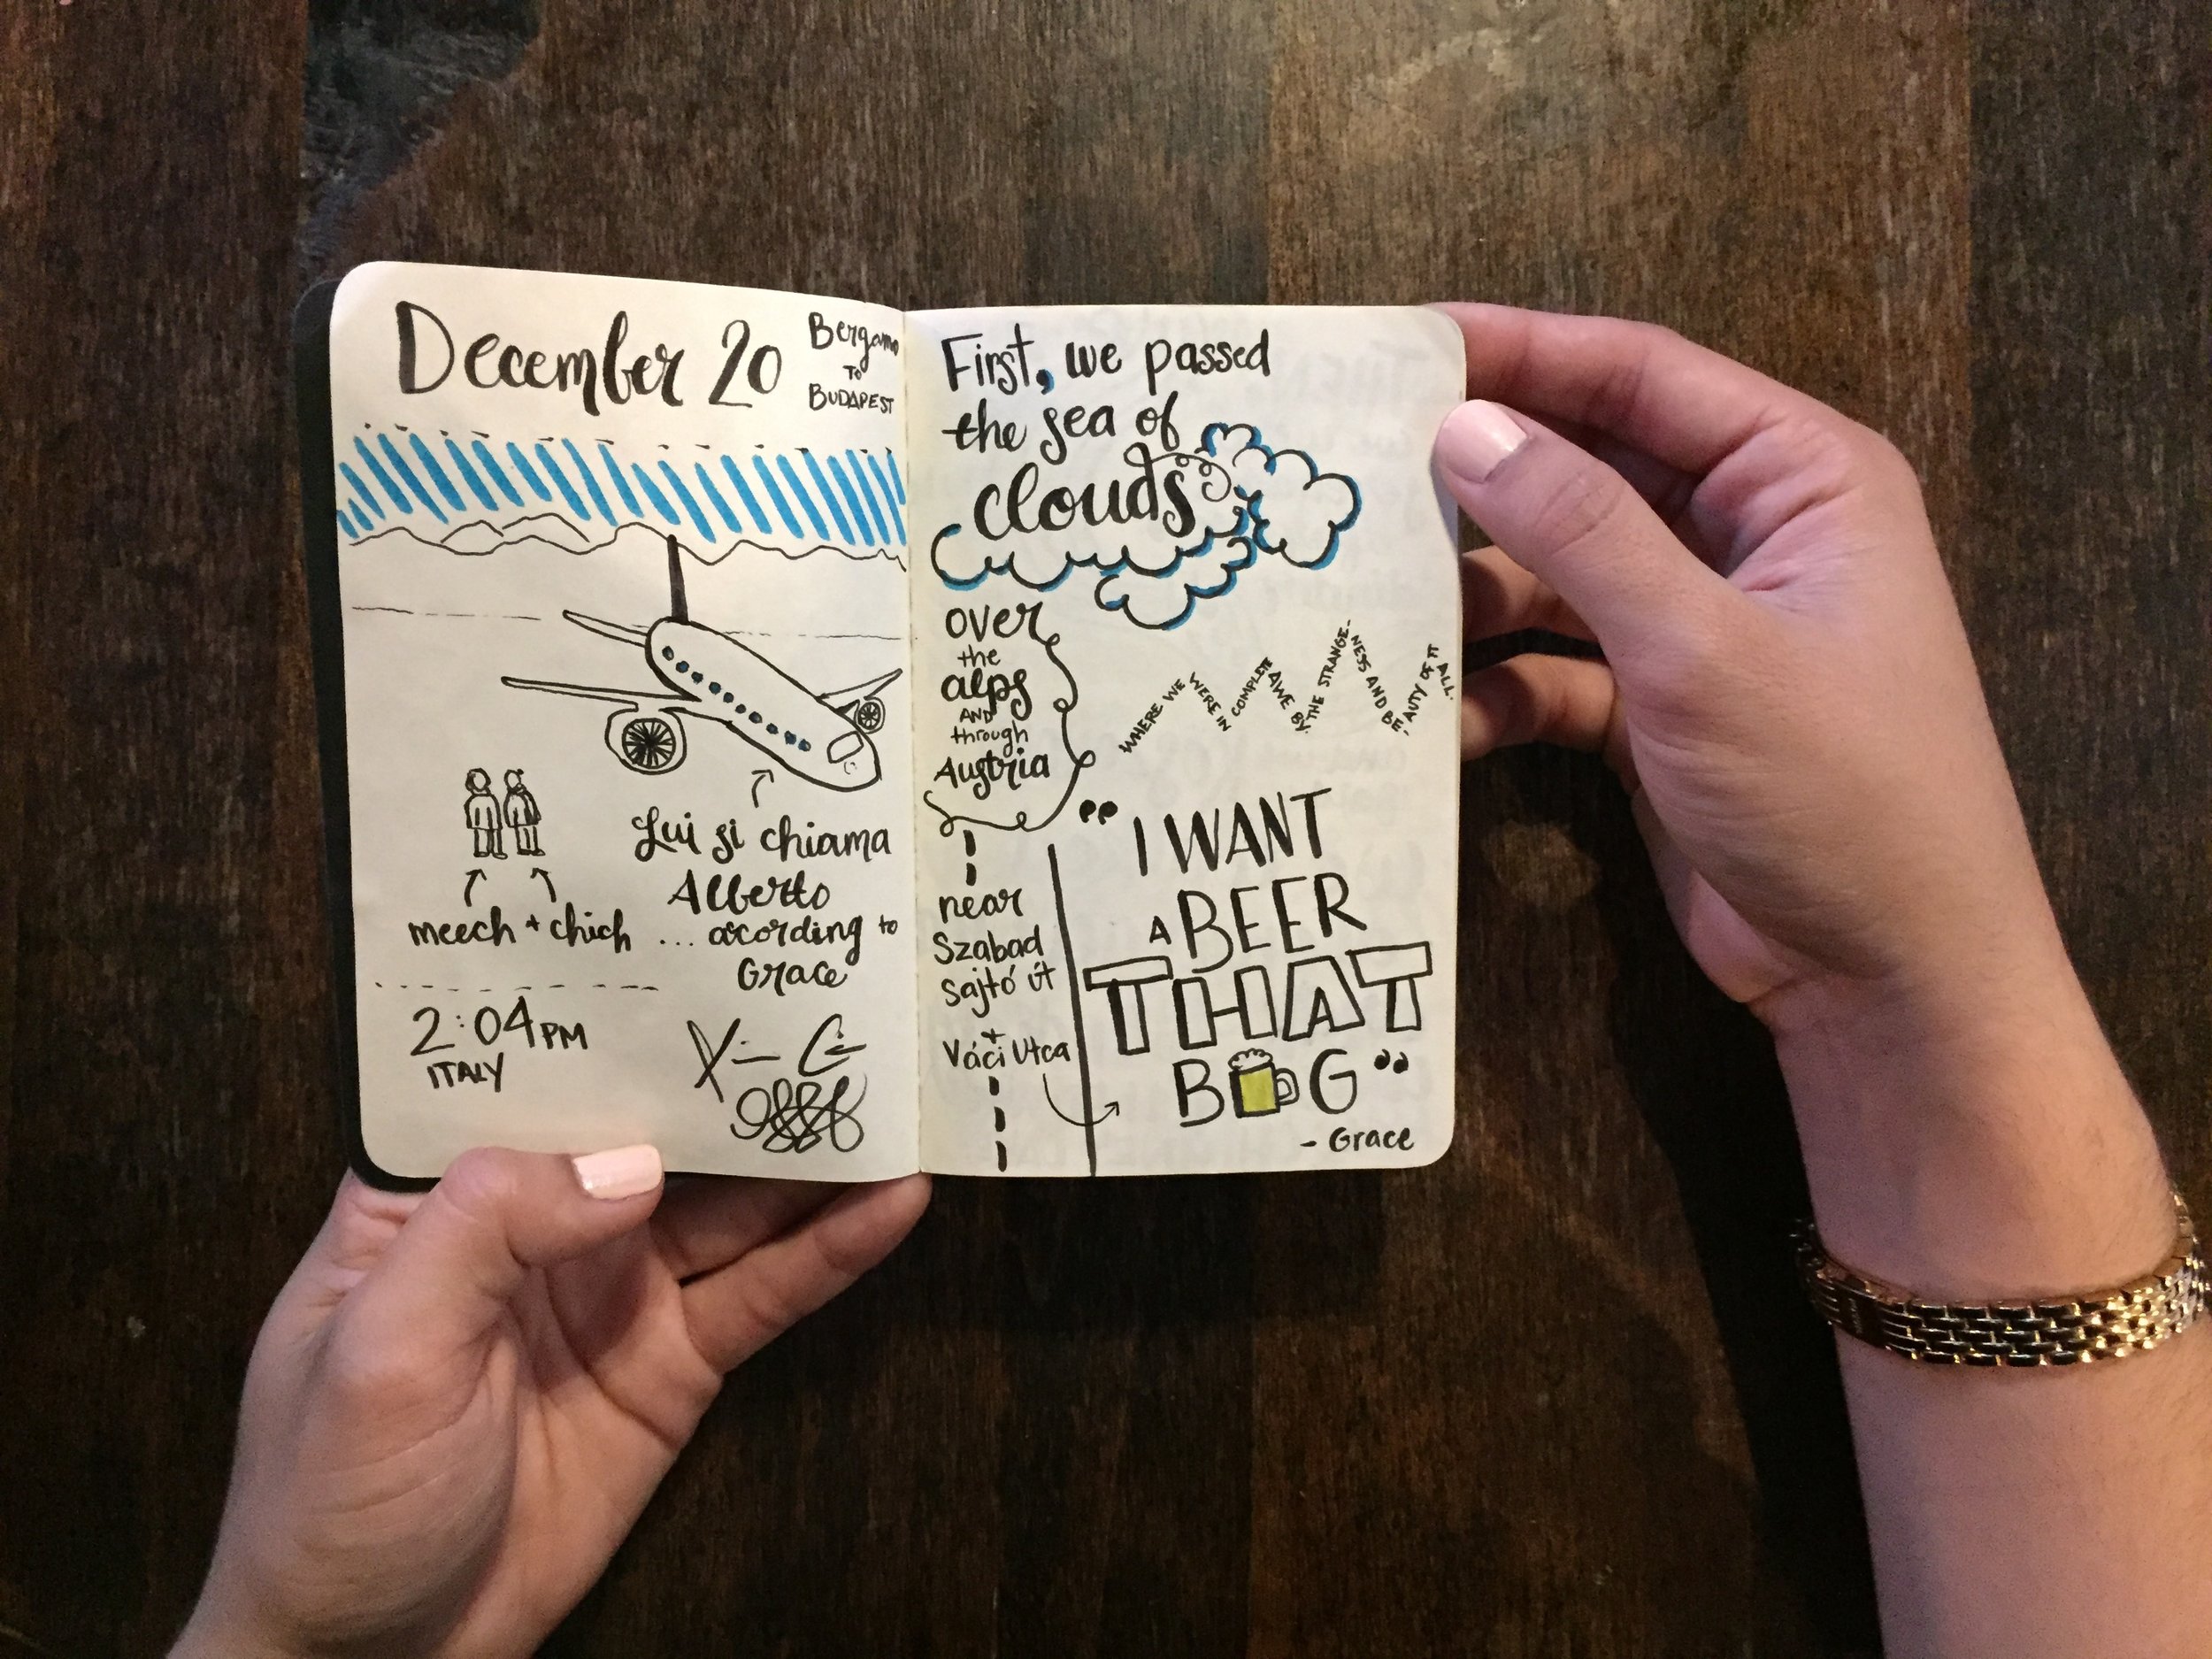 December 20
Bergamo
TO
BUDAPEST
Lui si chiama
Alberto
... acording to
Grace
meech + chich
2:04 PM
ITALY
First, we passed
the sea of
clouds
over
the
alps
AND
through
Austria
WHERE WE WERE IN COMPLETE AWE BY THE STRANGE-NESS AND BE,AUTY OF IT ALL.
near
Szabad
Sajtó út
+
Váci Utca
"I WANT
A BEER
THAT
BIG"
- Grace